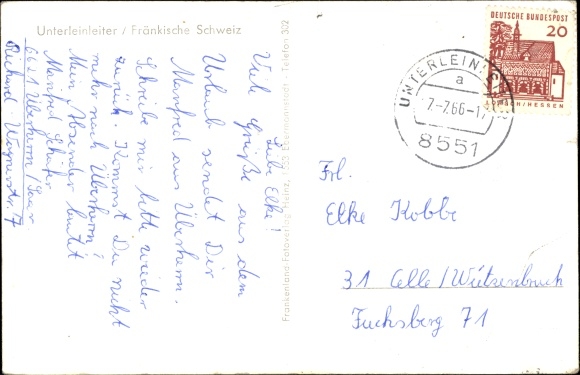 Unterleinleiter / Fränkische Schweiz
Liebe Elke!
Viele Grüße aus dem
Urlaub sendet Dir
Manfred aus Überherrn.
Schreibe mir bitte wieder
zurück. Kommst Du nicht
mehr nach Überherrn?
Mein Absender lautet
Manfred Schäfer
6641 Überherrn / Saar
Richard Wagnerstr. 17
Frankenland-Fotoverlag Heinz, 8553 Ebermannstadt, Telefon 302
DEUTSCHE BUNDESPOST
20
LORSCH/HESSEN
UNTERLEINL
a
7.-7.66-17
8551
Frl.
Elke Kobbe
31 Celle/Wietzenbruch
Fuchsberg 71